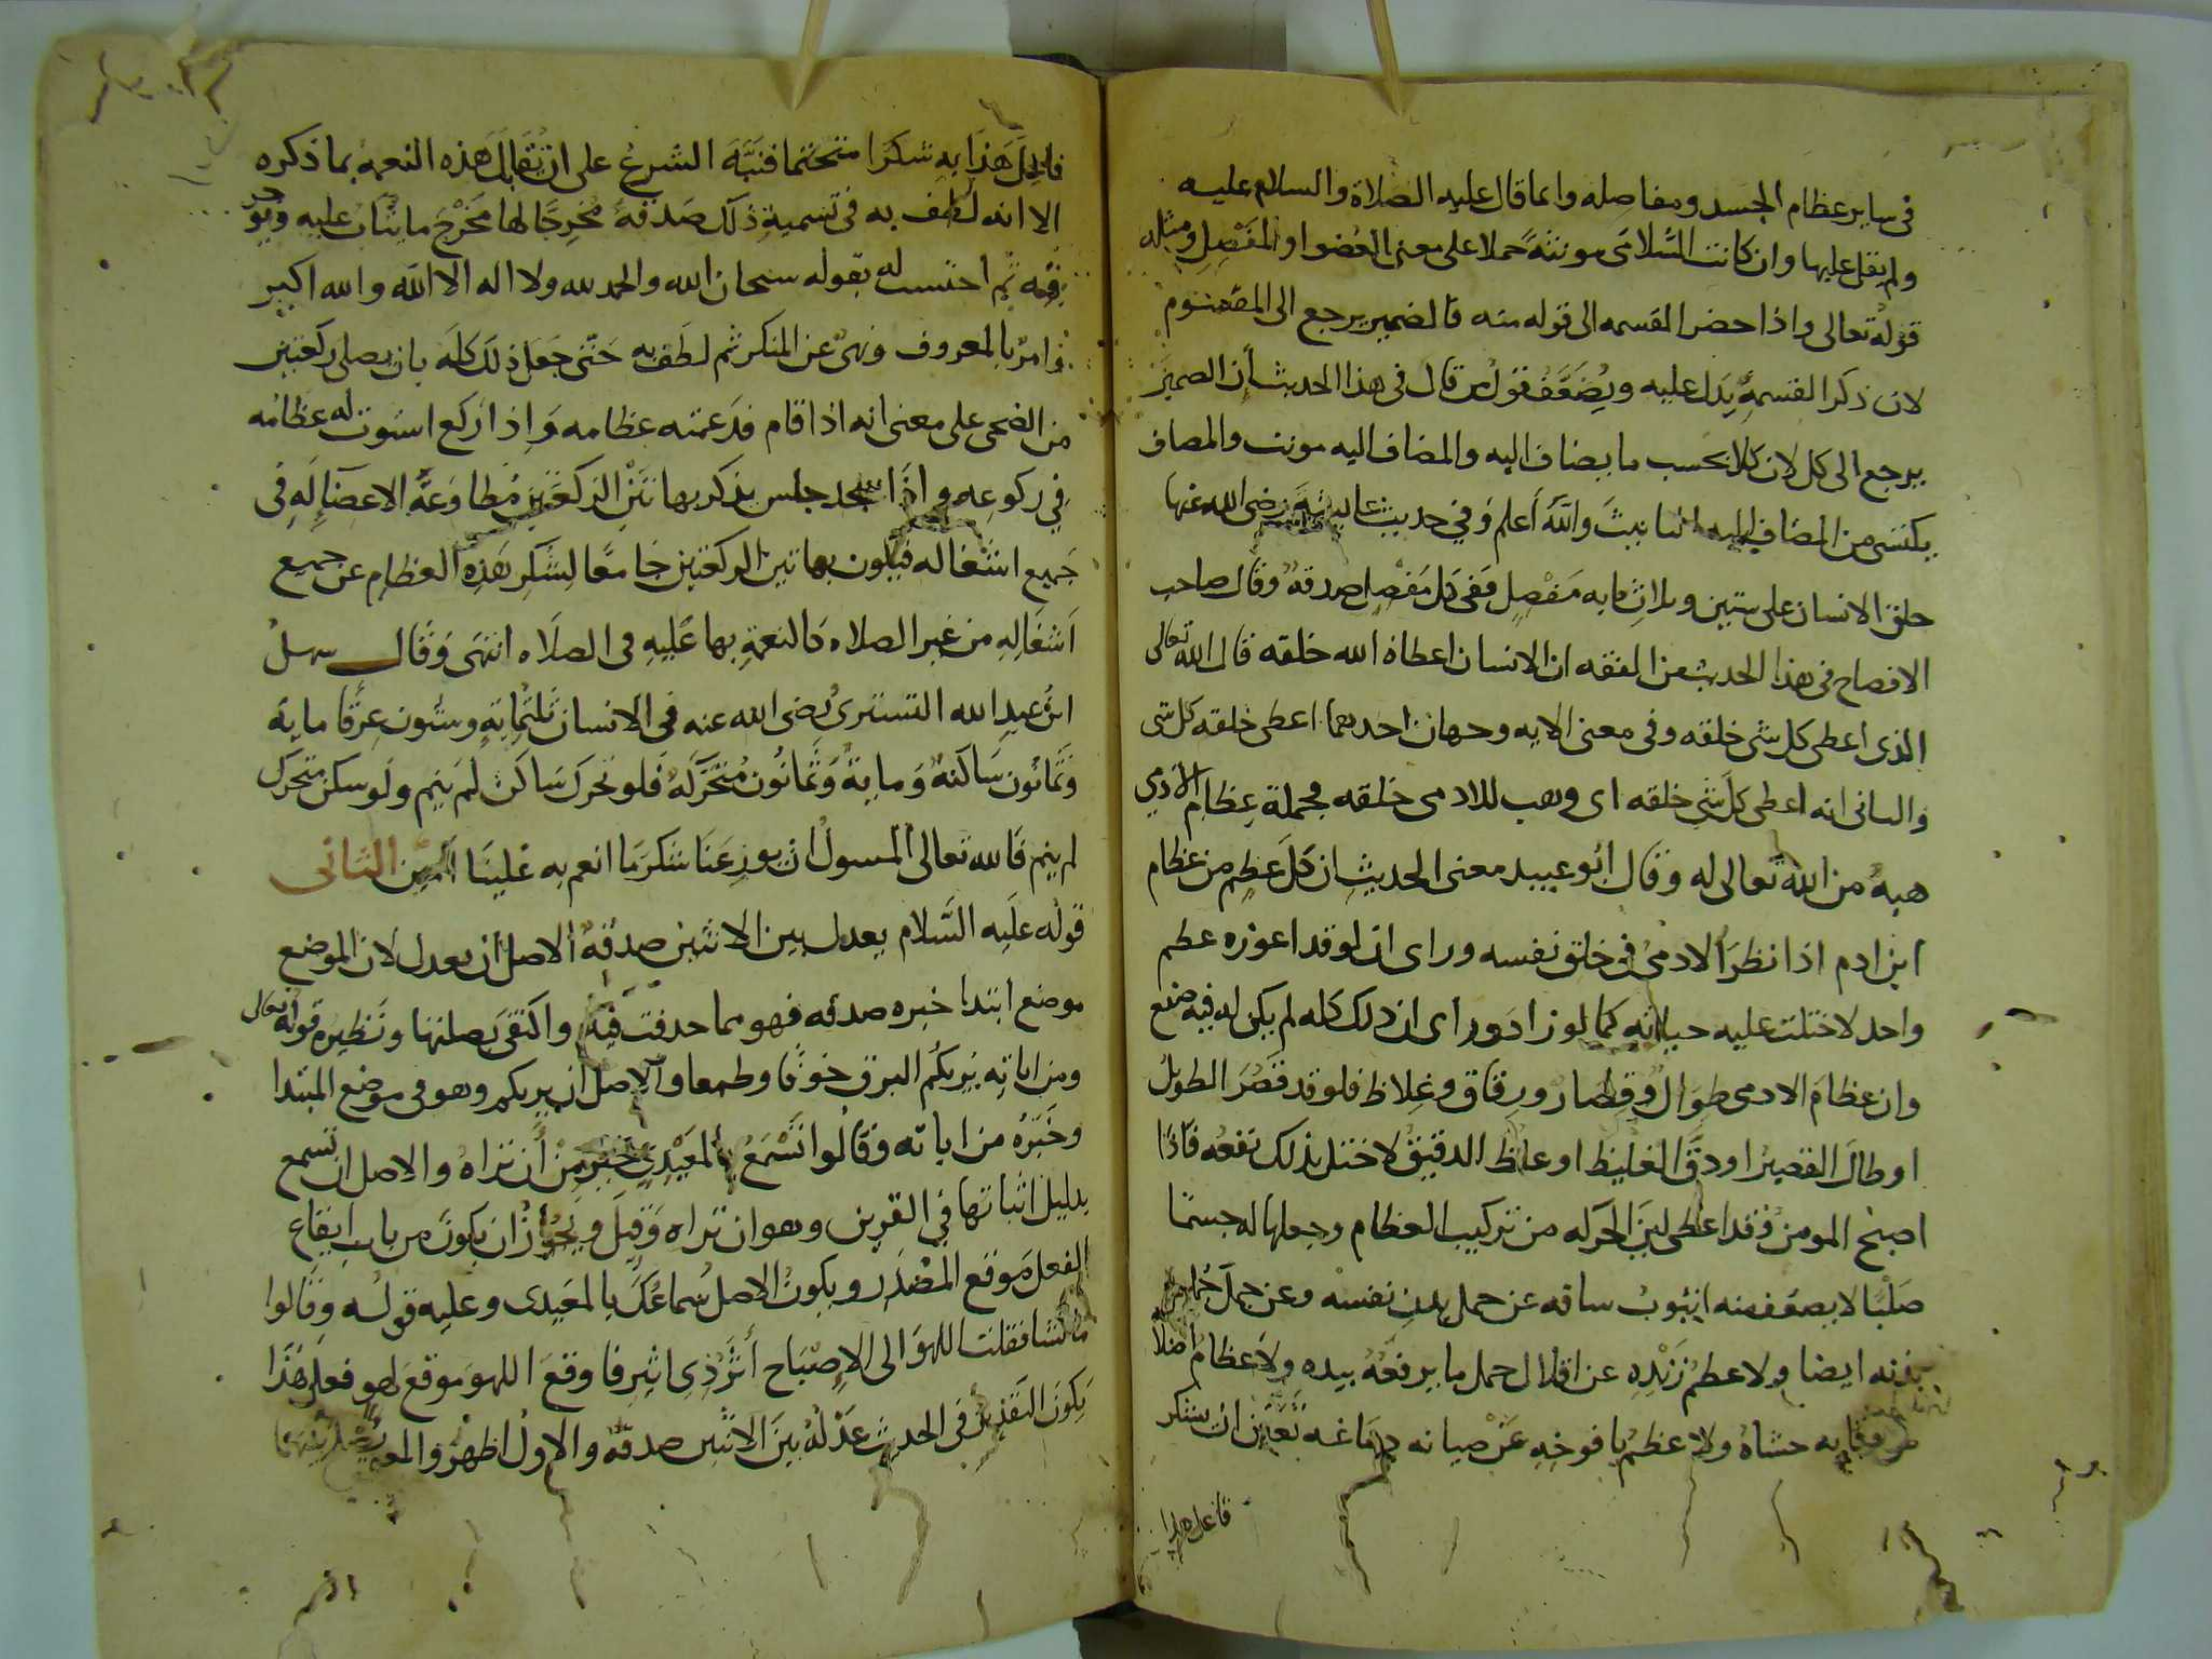 في ساير عظام الجسد ومفاصله وانما قال عليه الصلاة والسلام عليه
ولم يقل عليها وان كانت السلامى مونثة حملا على معنى العضو او المفصل ومثله
قوله تعالى واذا حضر القسمه الى قوله منه فالضمير يرجع الى المقسوم
لان ذكر القسمة يدل عليه ويضعف قول من قال في هذا الحديث أن الضمير
يرجع الى كل لان كلا بحسب ما يضاف اليه والمضاف اليه مونث والمضاف
يكتسى من المضاف اليه التانيث والله أعلم وفي حديث عايشة رضى الله عنها
خلق الانسان على ستين وثلاث مايه مفصل ففى كل مفصل صدقة وقال صاحب
الافصاح فى هذا الحديث من الفقه ان الانسان اعطاه الله خلقه قال الله تعالى
الذى اعطى كل شى خلقه وفى معنى الايه وجهان احدهما اعطى خلقه كل شى
والثانى انه اعطى كل شي خلقه اى وهب للادمى خلقه فجملة عظام الادمي
هبة من الله تعالى له وقال ابو عبيد معنى الحديث ان كل عظم من عظام
ابن ادم اذا نظر الادمى فى خلق نفسه وراى ان لو قد اعوزه عظم
واحد لاختلت عليه حياته كما لو زاد وراى ان ذلك كله لم يكن له فيه صنع
وان عظام الادمى طوال وقصار ورقاق وغلاظ فلو قد قصر الطويل
او طال القصير او دق الغليظ او غلظ الدقيق لاختل بذلك نفعه فاذا
اصبح المومن فقد اعطى لين الحركه من تركيب العظام وجعلها له جسما
صلبا لا يضعف منه انبوب ساقه عن حمل بدن نفسه وعن حمل
بدنه ايضا ولا عظم زنده عن اقلال حمل ما يرفعه بيده ولا عظام اضلا
عن وقايه حشاه ولا عظم يافوخه عن صيانه دماغه تعين ان يشكر
فاعل هذا
فاعل هذا به شكرا متحتما فنبه الشرع على ان تقابل هذه النعمة بما ذكره
الا انه لطف به فى تسمية ذلك صدقة مخرجا لها مخرج ما يثاب عليه ويوجر
فيه ثم احتسب له بقوله سبحان الله والحمد لله ولا اله الا الله والله اكبر
وامر بالمعروف ونهى عن المنكر ثم لطف به حتى جعل ذلك كله بان يصلى ركعتين
من الضحى على معنى انه اذا قام فدعمته عظامه واذا ركع استوت له عظامه
في ركوعه واذا سجد جلس يذكر بهاتين الركعتين مطاوعة الاعضا له فى
جميع اشغاله فيكون بهاتين الركعتين جامعا لشكر هذه العظام عن جميع
اشغاله من غير الصلاه كالنعمة بها عليه فى الصلاه انتهى وقال سهل
ابن عبد الله التسترى رضى الله عنه فى الانسان ثلثماية وستون عرقا ماية
وثمانون ساكنة وماية وثمانون متحركة فلو تحرك ساكن لم ينم ولو سكن متحرك
لم ينم فالله تعالى المسول ان يوزعنا شكر ما انعم به علينا امين الثانى
قوله عليه السلام يعدل بين الاثنين صدقة الاصل أن يعدل لان الموضع
موضع ابتدا خبره صدقه فهو مما حذفت فيه واكتفى بصلتها ونظيره قوله تعالى
ومن اياته يريكم البرق خوفا وطمعا والاصل ان يريكم وهو فى موضع المبتدا
وخبره من اياته وقالوا تسمع بالمعيدي خير من أن تراه والاصل ان تسمع
بدليل اثباتها في القرين وهو ان تراه وقيل ويجوز ان يكون من باب ايقاع
الفعل موقع المصدر ويكون الاصل سماعك بالمعيدى وعليه قوله وقالوا
ما تشا فقلت اللهو الى الاصباح أثر ذى اثير فاوقع اللهو موقع لهو فعلى هذا
يكون التقدير فى الحديث عدله بين الاثنين صدقة والاول اظهر والمعنى